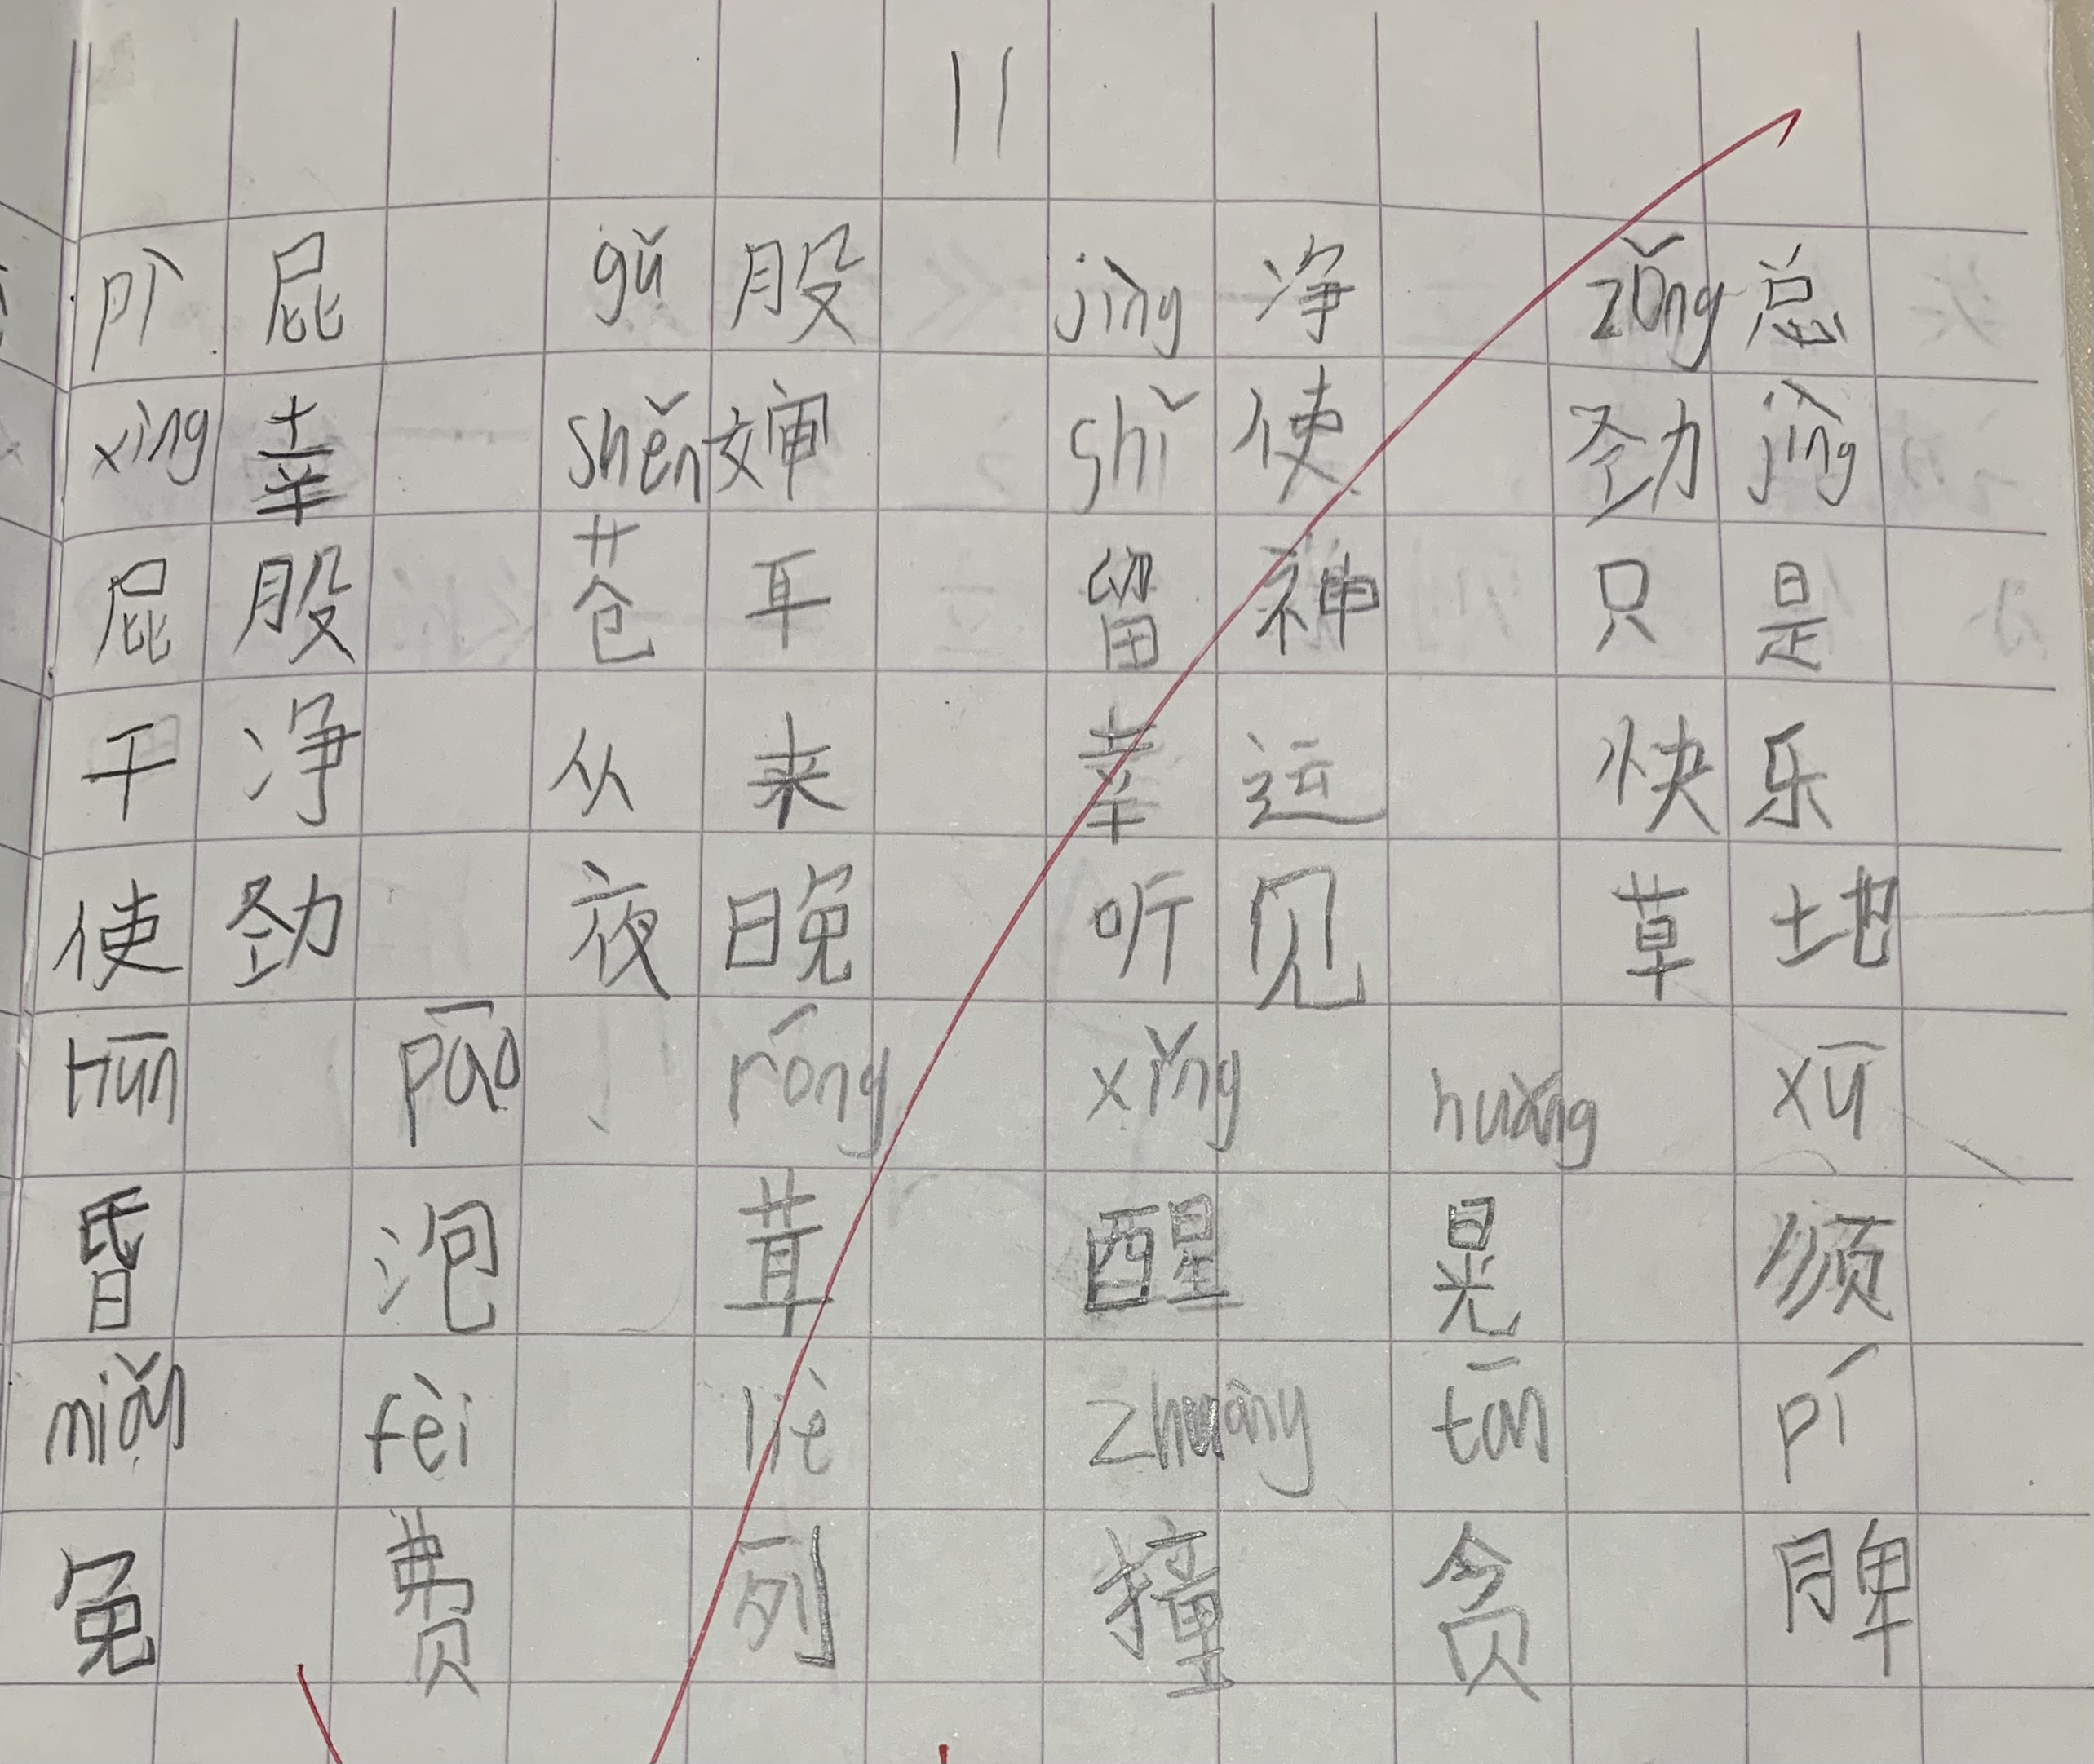 11
pì 屁 gǔ 股 jìng 净 zǒng 总
xìng 幸 shěn 婶 shǐ 使 劲 jìng
屁股 苍耳 留神 只是
干净 从来 幸运 快乐
使劲 夜晚 听见 草地
hūn pāo róng xǐng huàng xū
昏 泡 茸 醒 晃 须
miǎn fèi liè zhuàng tān pí
免 费 列 撞 贪 脾